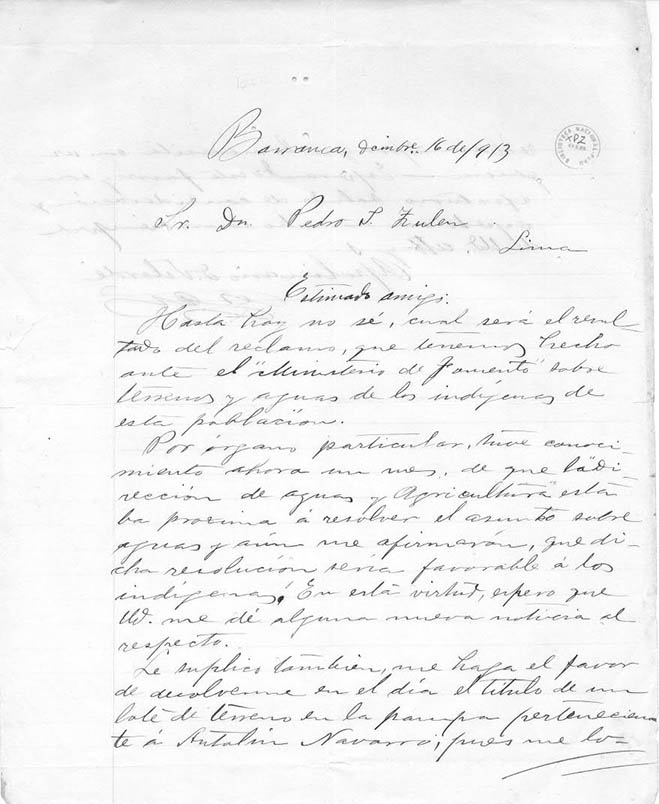 Barranca, dcmbre. 16 de 1913
Sr. Dn. Pedro S. Zulen
Lima
Estimado amigo:
Hasta hoy no sé, cual será el resul-
tado del reclamo, que tenemos hecho
ante el "Ministerio de Fomento" sobre
terrenos y aguas de los indígenas de
esta población.
Por órgano particular, tuve conoci-
miento ahora un mes, de que la "Di-
rección de aguas y Agricultura" esta
ba procsima á resolver el asunto sobre
aguas y aún me afirmarón, que di-
cha resolución sería favorable á los
indígenas. En está virtud, espero que
Ud. me dé alguna nueva noticia al
respecto.
Le suplico también, me haga el favor
de devolverme en el día el título de un
lote de terreno en la pampa pertenecien
te á Antolín Navarro, pues me lo-
BIBLIOTECA NACIONAL
XPZ